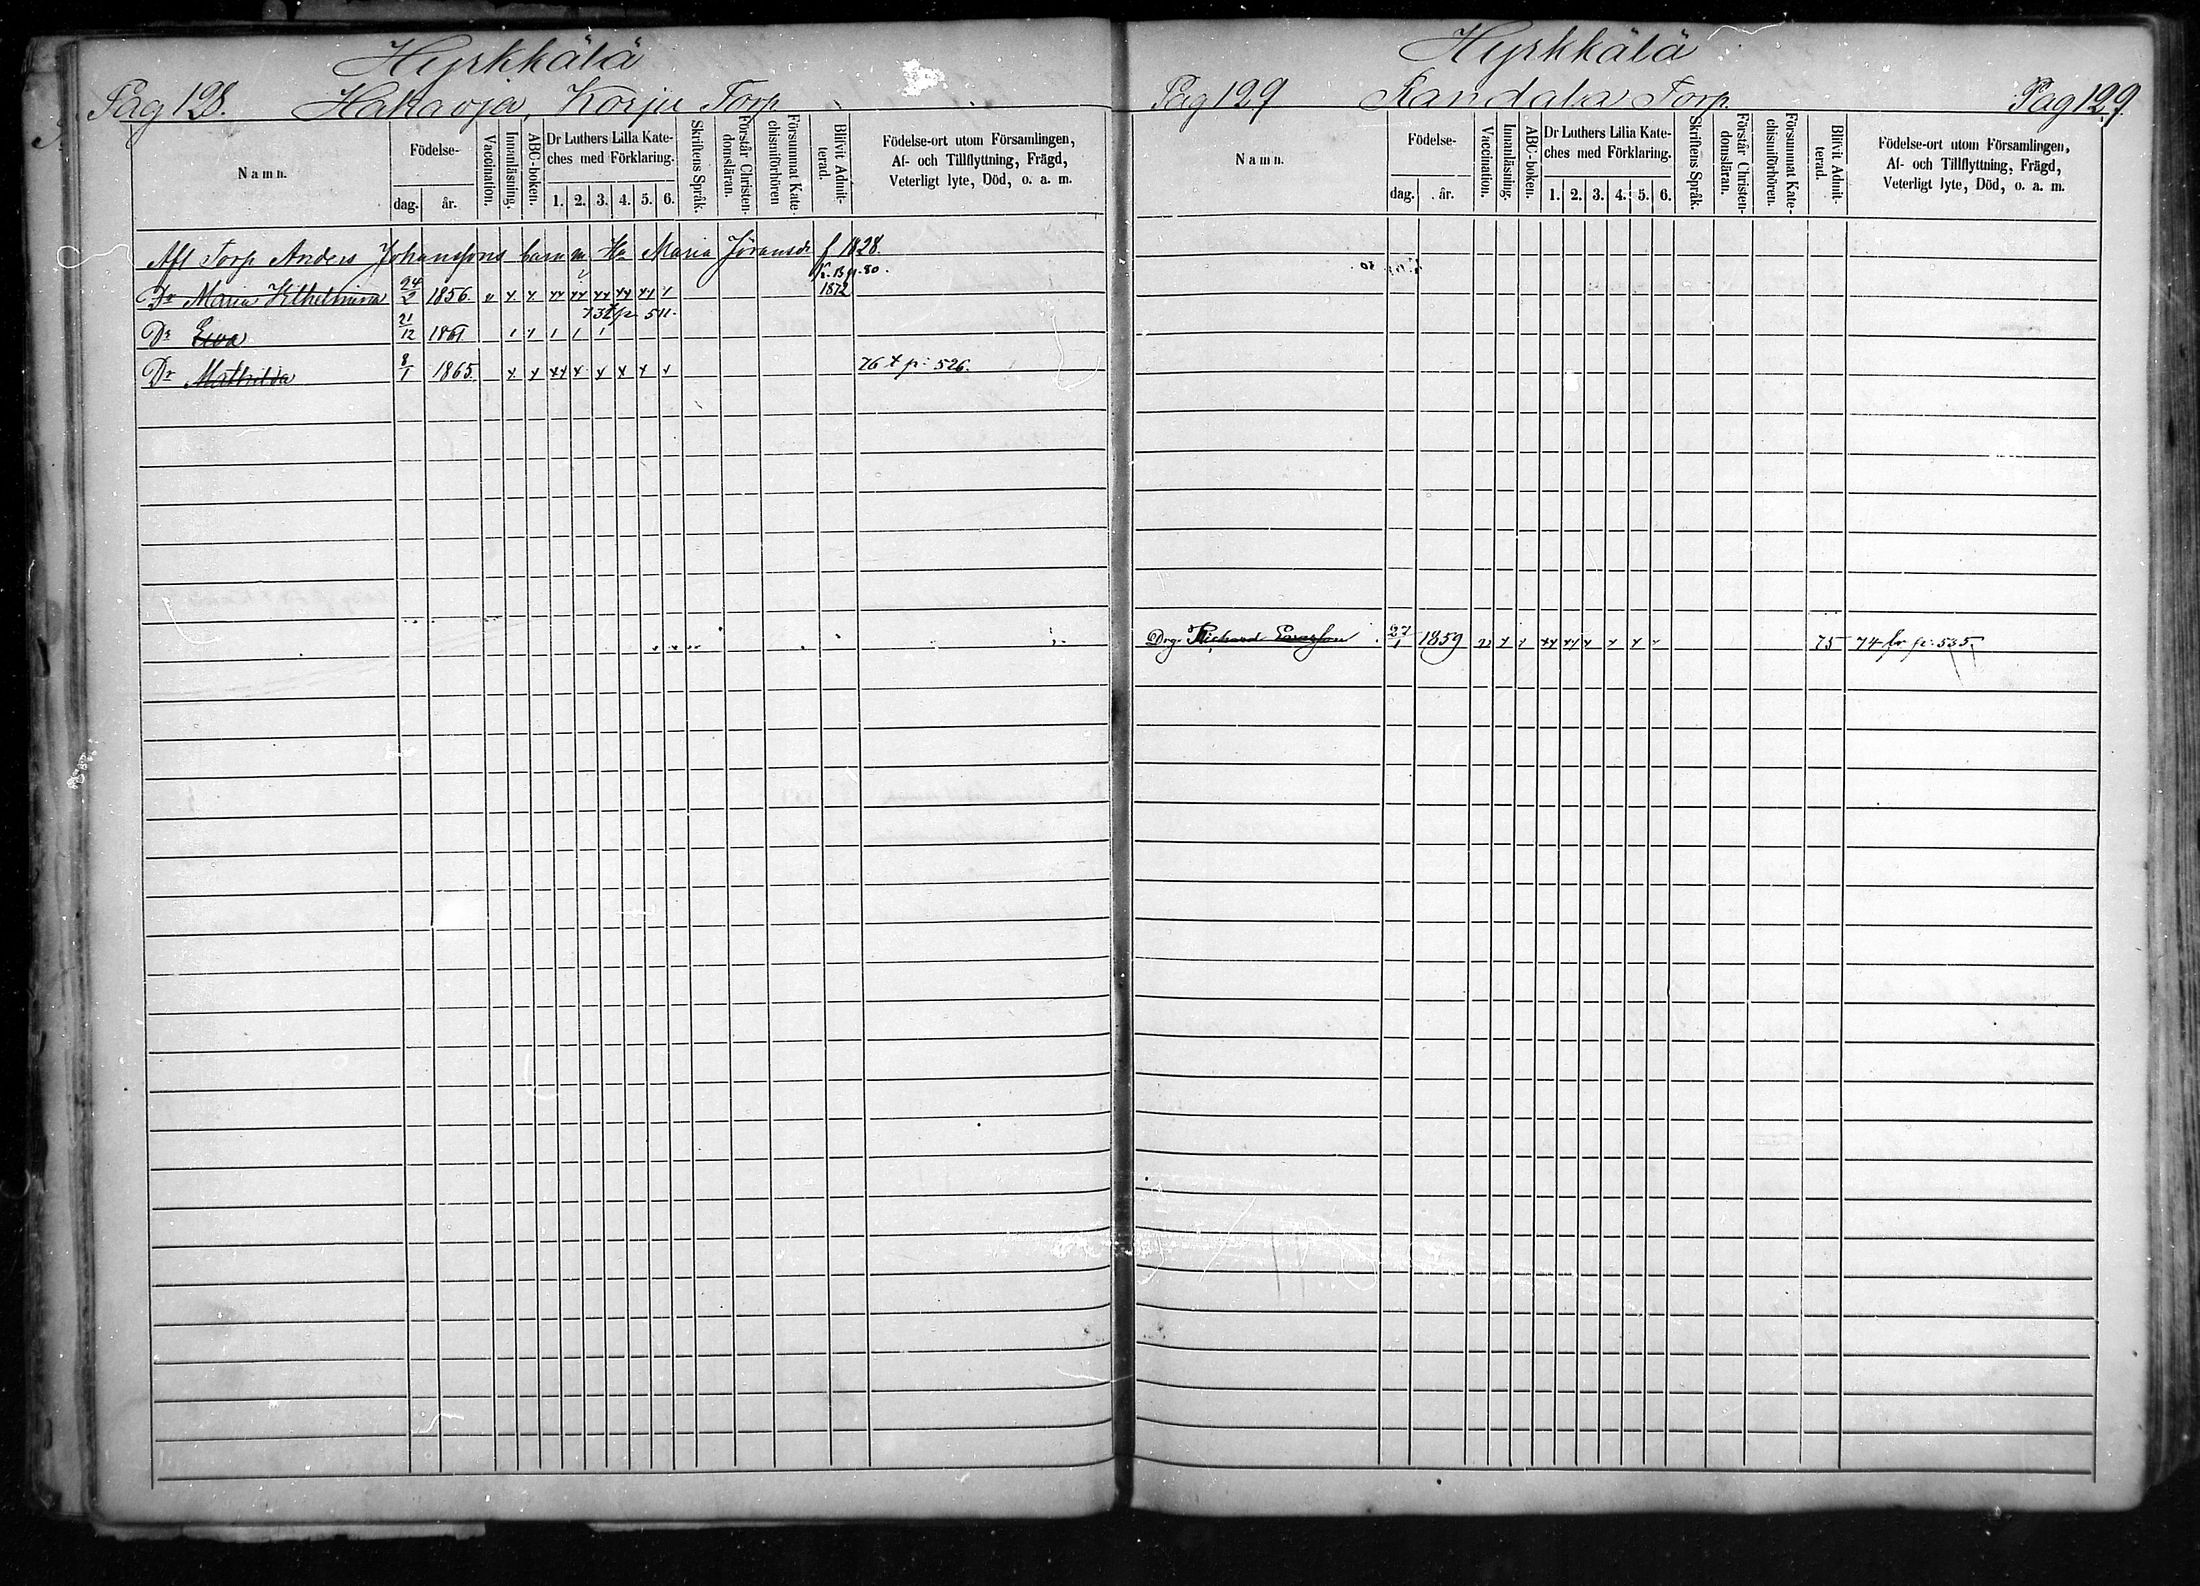 Hyrkkälä
Pag 128. Hakaoja, Korju Torp
Namn.
Födelse-
dag. år.
Vaccination.
Innanläsning.
ABC-boken.
Dr Luthers Lilla Kate-
ches med Förklaring.
1. 2. 3. 4. 5. 6.
Skriftens Språk.
Förstår Christen-
domsläran.
Försummat Kate-
chismiförhören
Blifvit Admit-
terad.
Födelse-ort utom Församlingen,
Af- och Tillflyttning, Frägd,
Veterligt lyte, Död, o. a. m.
Afl Torp Anders Johanssons barn m. Ha Maria Göransdr f 1828.
Dr Maria Wilhelmina 24/2 1856. v x x xx xx xx xx xx x 1872
73 p. 511.
Dr Eva 21/12 1861 1 x 1 1 1
Dr Mathilda 8/1 1865. x x xx x x x x x 76 p. 526.
Hyrkkälä
Pag 129 Randala Torp. Pag 129
Namn.
Födelse-
dag. år.
Vaccination.
Innanläsning.
ABC-boken.
Dr Luthers Lilla Kate-
ches med Förklaring.
1. 2. 3. 4. 5. 6.
Skriftens Språk.
Förstår Christen-
domsläran.
Försummat Kate-
chismiförhören.
Blifvit Admit-
terad.
Födelse-ort utom Församlingen,
Af- och Tillflyttning, Frägd,
Veterligt lyte, Död, o. a. m.
Drg. Richard 27/1 1859 v x x xx xx x x x x 75 74 fr p. 535.